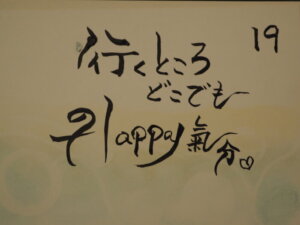 19
行くところ
どこでも
Happy氣分